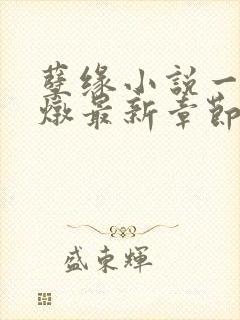 孽缘小説一
燉最新章節
盛東輝